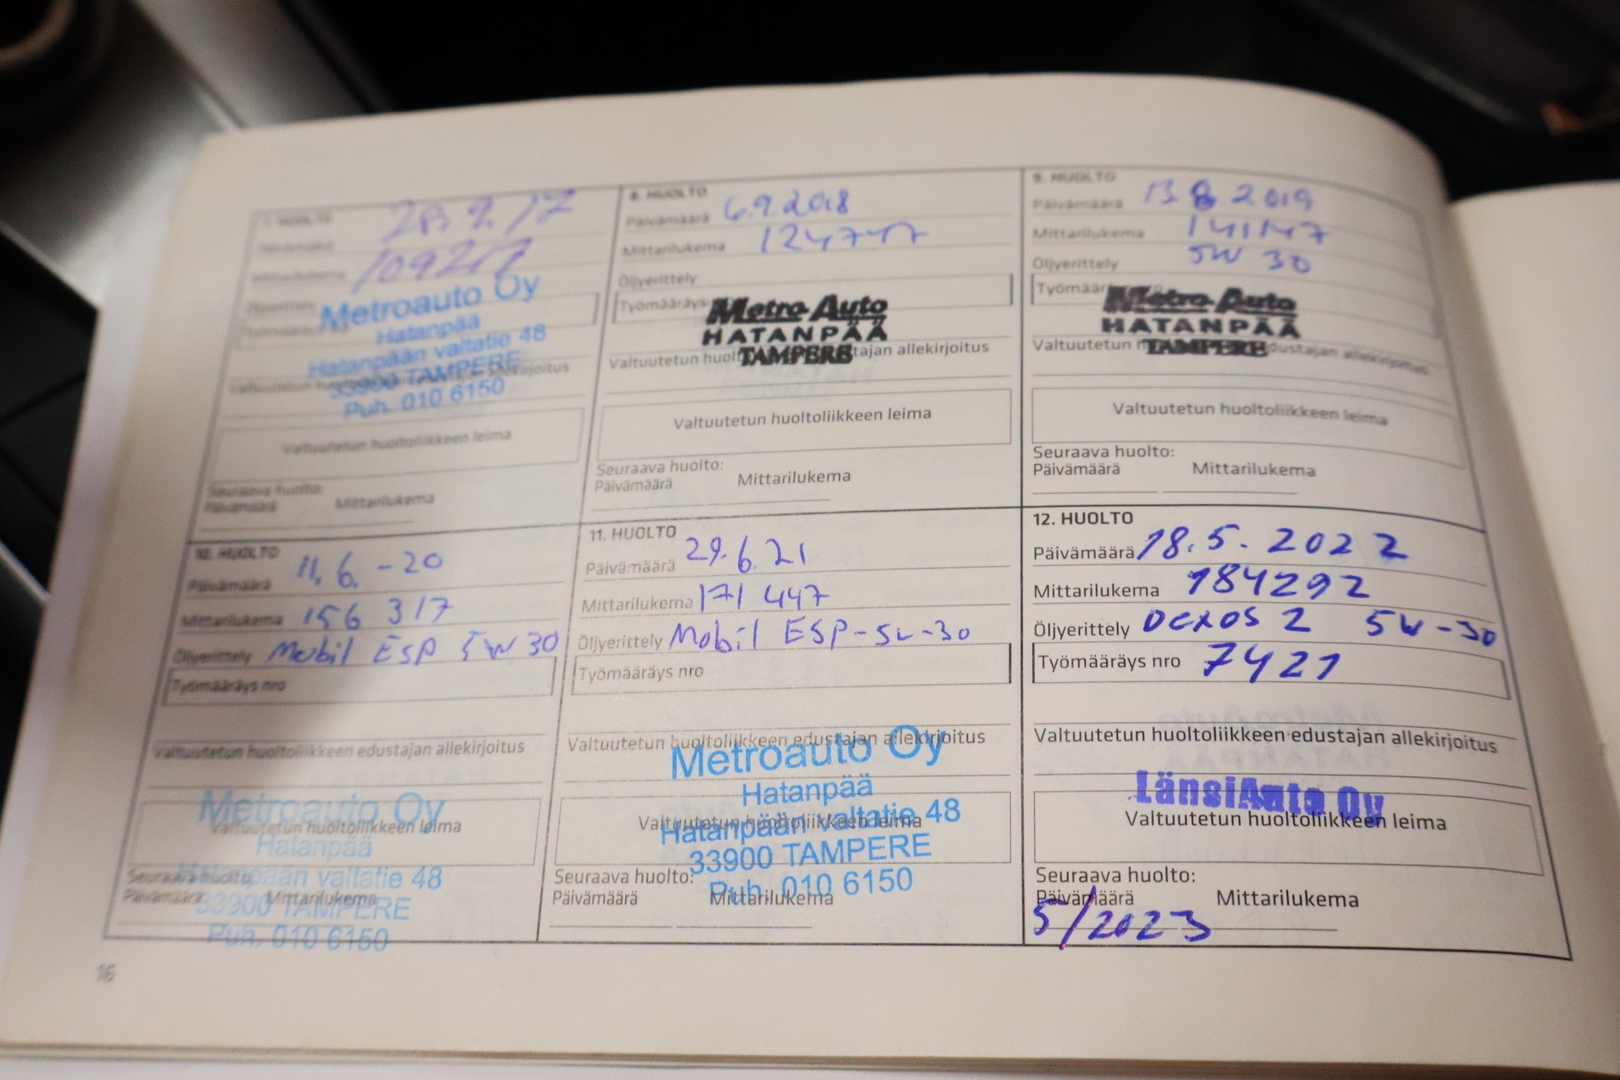 7. HUOLTO
28.9.17
Päivämäärä
Mittarilukema 109217
Öljyerittely
Metroauto Oy
Hatanpää
Hatanpään valtatie 48
33900 TAMPERE
Puh. 010 6150
Valtuutetun huoltoliikkeen leima
Seuraava huolto:
Päivämäärä Mittarilukema
8. HUOLTO
Päivämäärä 6.9.2018
Mittarilukema 124747
Öljyerittely
Työmääräys
Metro-Auto
HATANPÄÄ
TAMPERE
Valtuutetun huoltoliikkeen edustajan allekirjoitus
Valtuutetun huoltoliikkeen leima
Seuraava huolto:
Päivämäärä Mittarilukema
9. HUOLTO
Päivämäärä 13.8.2019
Mittarilukema 141147
Öljyerittely 5W 30
Metro-Auto
HATANPÄÄ
TAMPERE
Valtuutetun edustajan allekirjoitus
Valtuutetun huoltoliikkeen leima
Seuraava huolto:
Päivämäärä Mittarilukema
10. HUOLTO
Päivämäärä 11.6.-20
Mittarilukema 156 317
Öljyerittely Mobil ESP 5W30
Työmääräys nro
Valtuutetun huoltoliikkeen edustajan allekirjoitus
Metroauto Oy
Valtuutetun huoltoliikkeen leima
Hatanpää
Hatanpään valtatie 48
33900 TAMPERE
Puh. 010 6150
Seuraava huolto:
Päivämäärä Mittarilukema
11. HUOLTO
Päivämäärä 29.6.21
Mittarilukema 171 447
Öljyerittely Mobil ESP-5W-30
Työmääräys nro
Valtuutetun huoltoliikkeen edustajan allekirjoitus
Metroauto Oy
Hatanpää
Valtuutetun huoltoliikkeen leima
Hatanpään valtatie 48
33900 TAMPERE
Puh. 010 6150
Seuraava huolto:
Päivämäärä Mittarilukema
12. HUOLTO
Päivämäärä 18.5.2022
Mittarilukema 184292
Öljyerittely DEXOS 2 5W-30
Työmääräys nro 7421
Valtuutetun huoltoliikkeen edustajan allekirjoitus
LänsiAuto Oy
Valtuutetun huoltoliikkeen leima
Seuraava huolto:
Päivämäärä Mittarilukema
5/2023
16